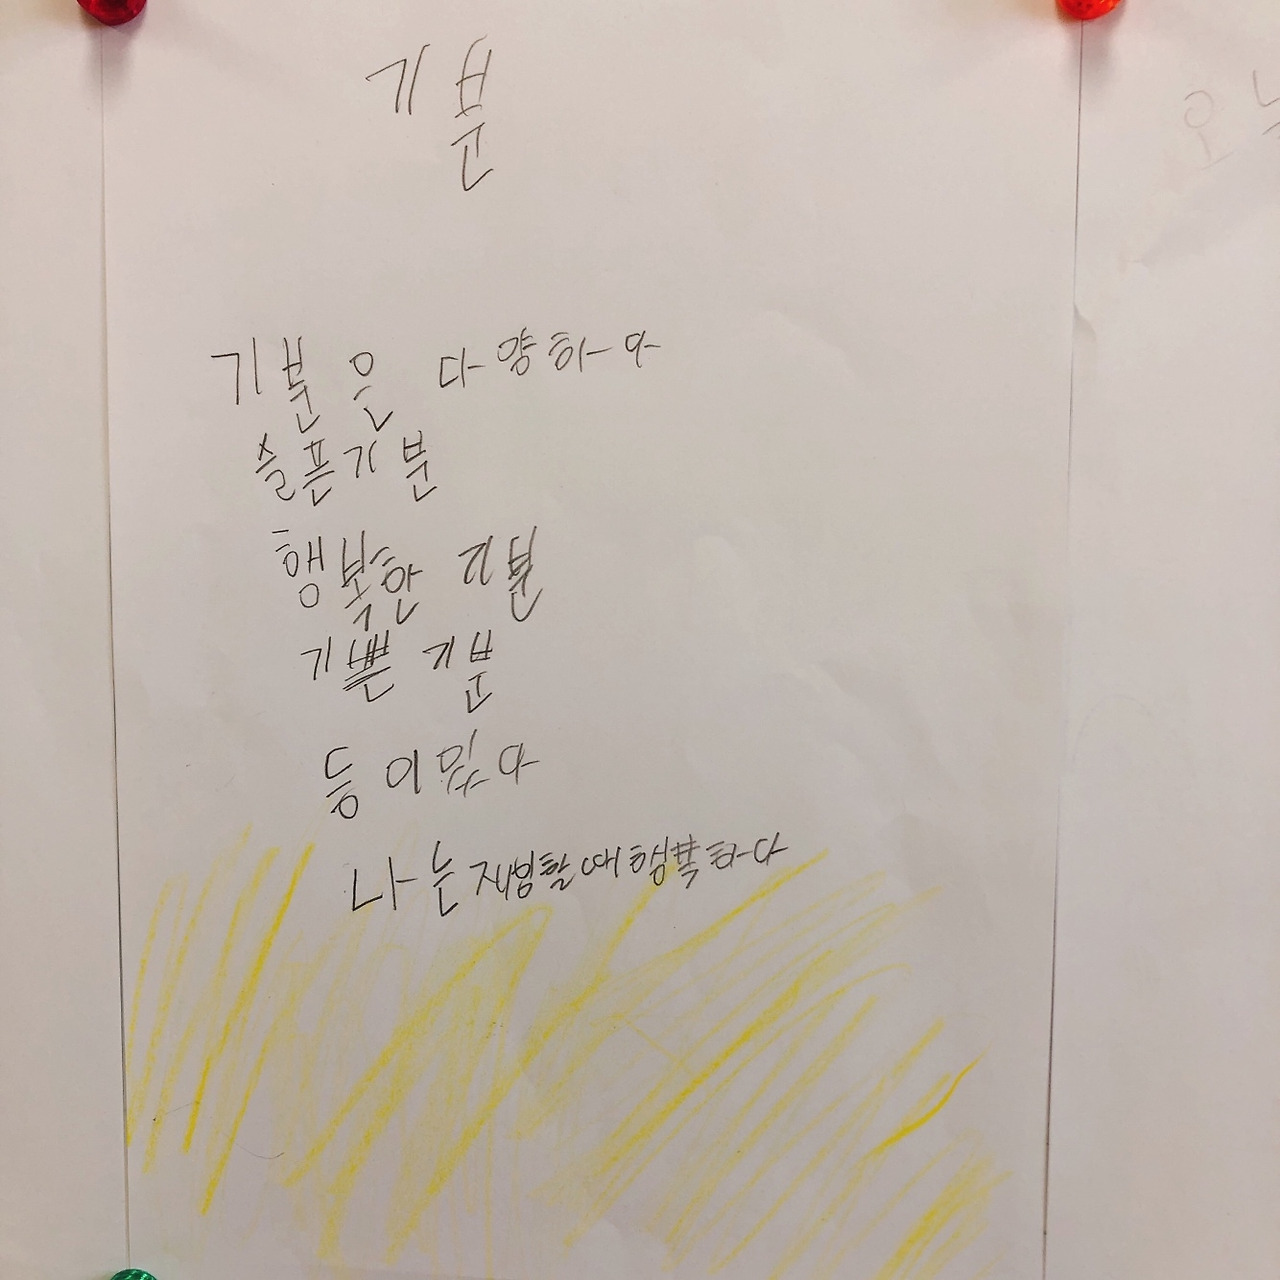 기분
기분은 다양하다
슬픈기분
행복한 기분
기쁜 기분
등이있다
나는 할때행복하다
오